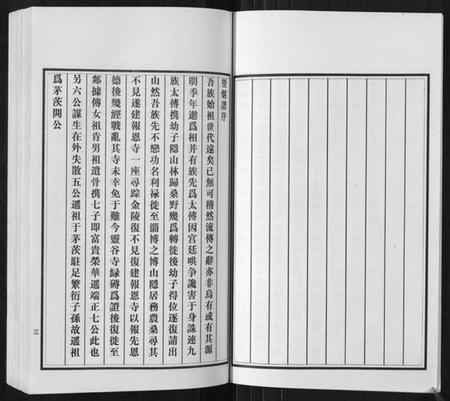 聖烟譜序
吾族始祖世代遠矣已無可稽然流傳之辭亦非烏有或有其源
明季年邀爲相并有族先爲太傅因宮廷哄爭讒害于身誅連九
族太傅攜幼子隱山林歸桑野幾爲轉徙後幼子得位逐復請出
山然吾族先不戀功名利祿徙至淄博之博山隱居務農桑尋其
不見遂建報恩寺一座尋踪金陵復不見復建報恩寺以報先恩
德後幾經戰亂其寺未幸免于難今靈谷寺録磚爲證後復徙至
鄰據傳女祖肯男祖遺骨携七子即富貴榮華遥端正七公此也
另六公謀生在外失散五公遥祖于茅茨駐足繁衍子孫故遥祖
爲茅茨開公
三